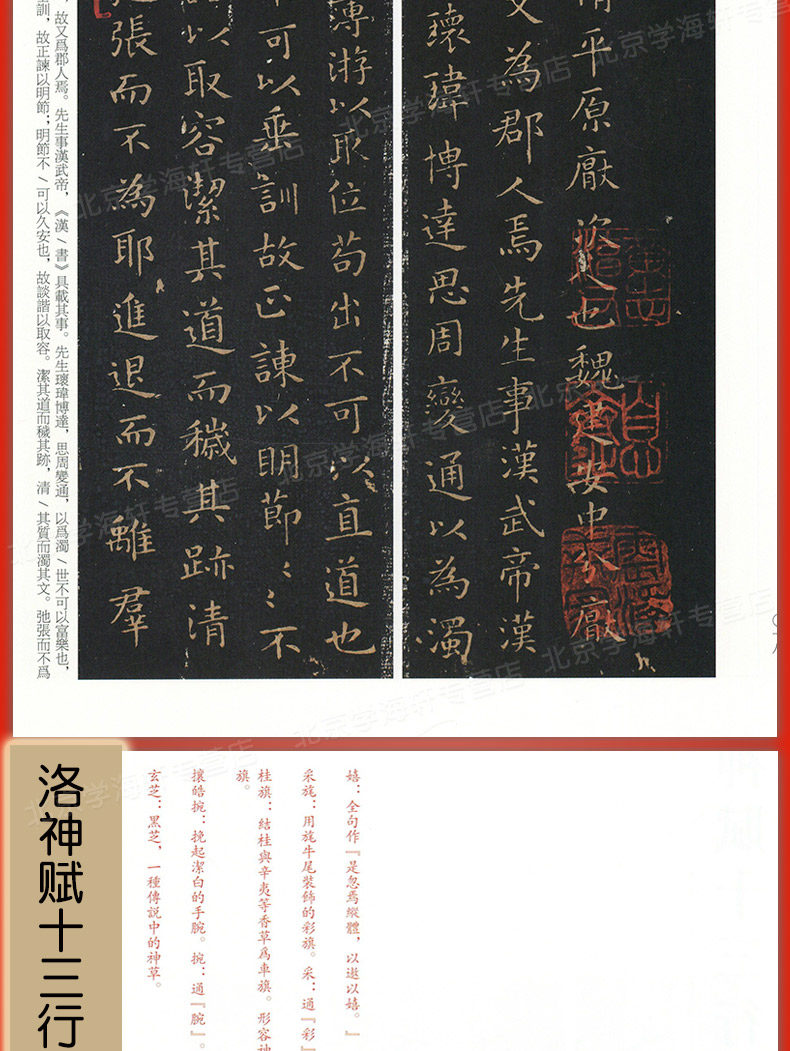 平原厭次人也魏建安中分厭
又為郡人焉先生事漢武帝漢
瓌瑋博達思周變通以為濁
薄游以取位苟出不可以直道也
可以垂訓故正諫以明節〻不
以取容潔其道而穢其跡清
張而不為耶進退而不離群
，故又爲郡人焉。先生事漢武帝，《漢/書》具載其事。先生瓌瑋博達，思周變通，以爲濁/世不可以富樂也，
訓，故正諫以明節；明節不/可以久安也，故談諧以取容。潔其道而穢其跡，清/其質而濁其文。弛張而不爲
洛神赋十三行
嬉：全句作『是忽焉縱體，以遨以嬉。』
采旄：用旄牛尾裝飾的彩旗。采：通『彩』
桂旗：結桂與辛夷等香草爲車旗。形容神
旗。
攘皓捥：挽起潔白的手腕。捥：通『腕』。
玄芝：黑芝，一種傳説中的神草。
北京学海轩专营店